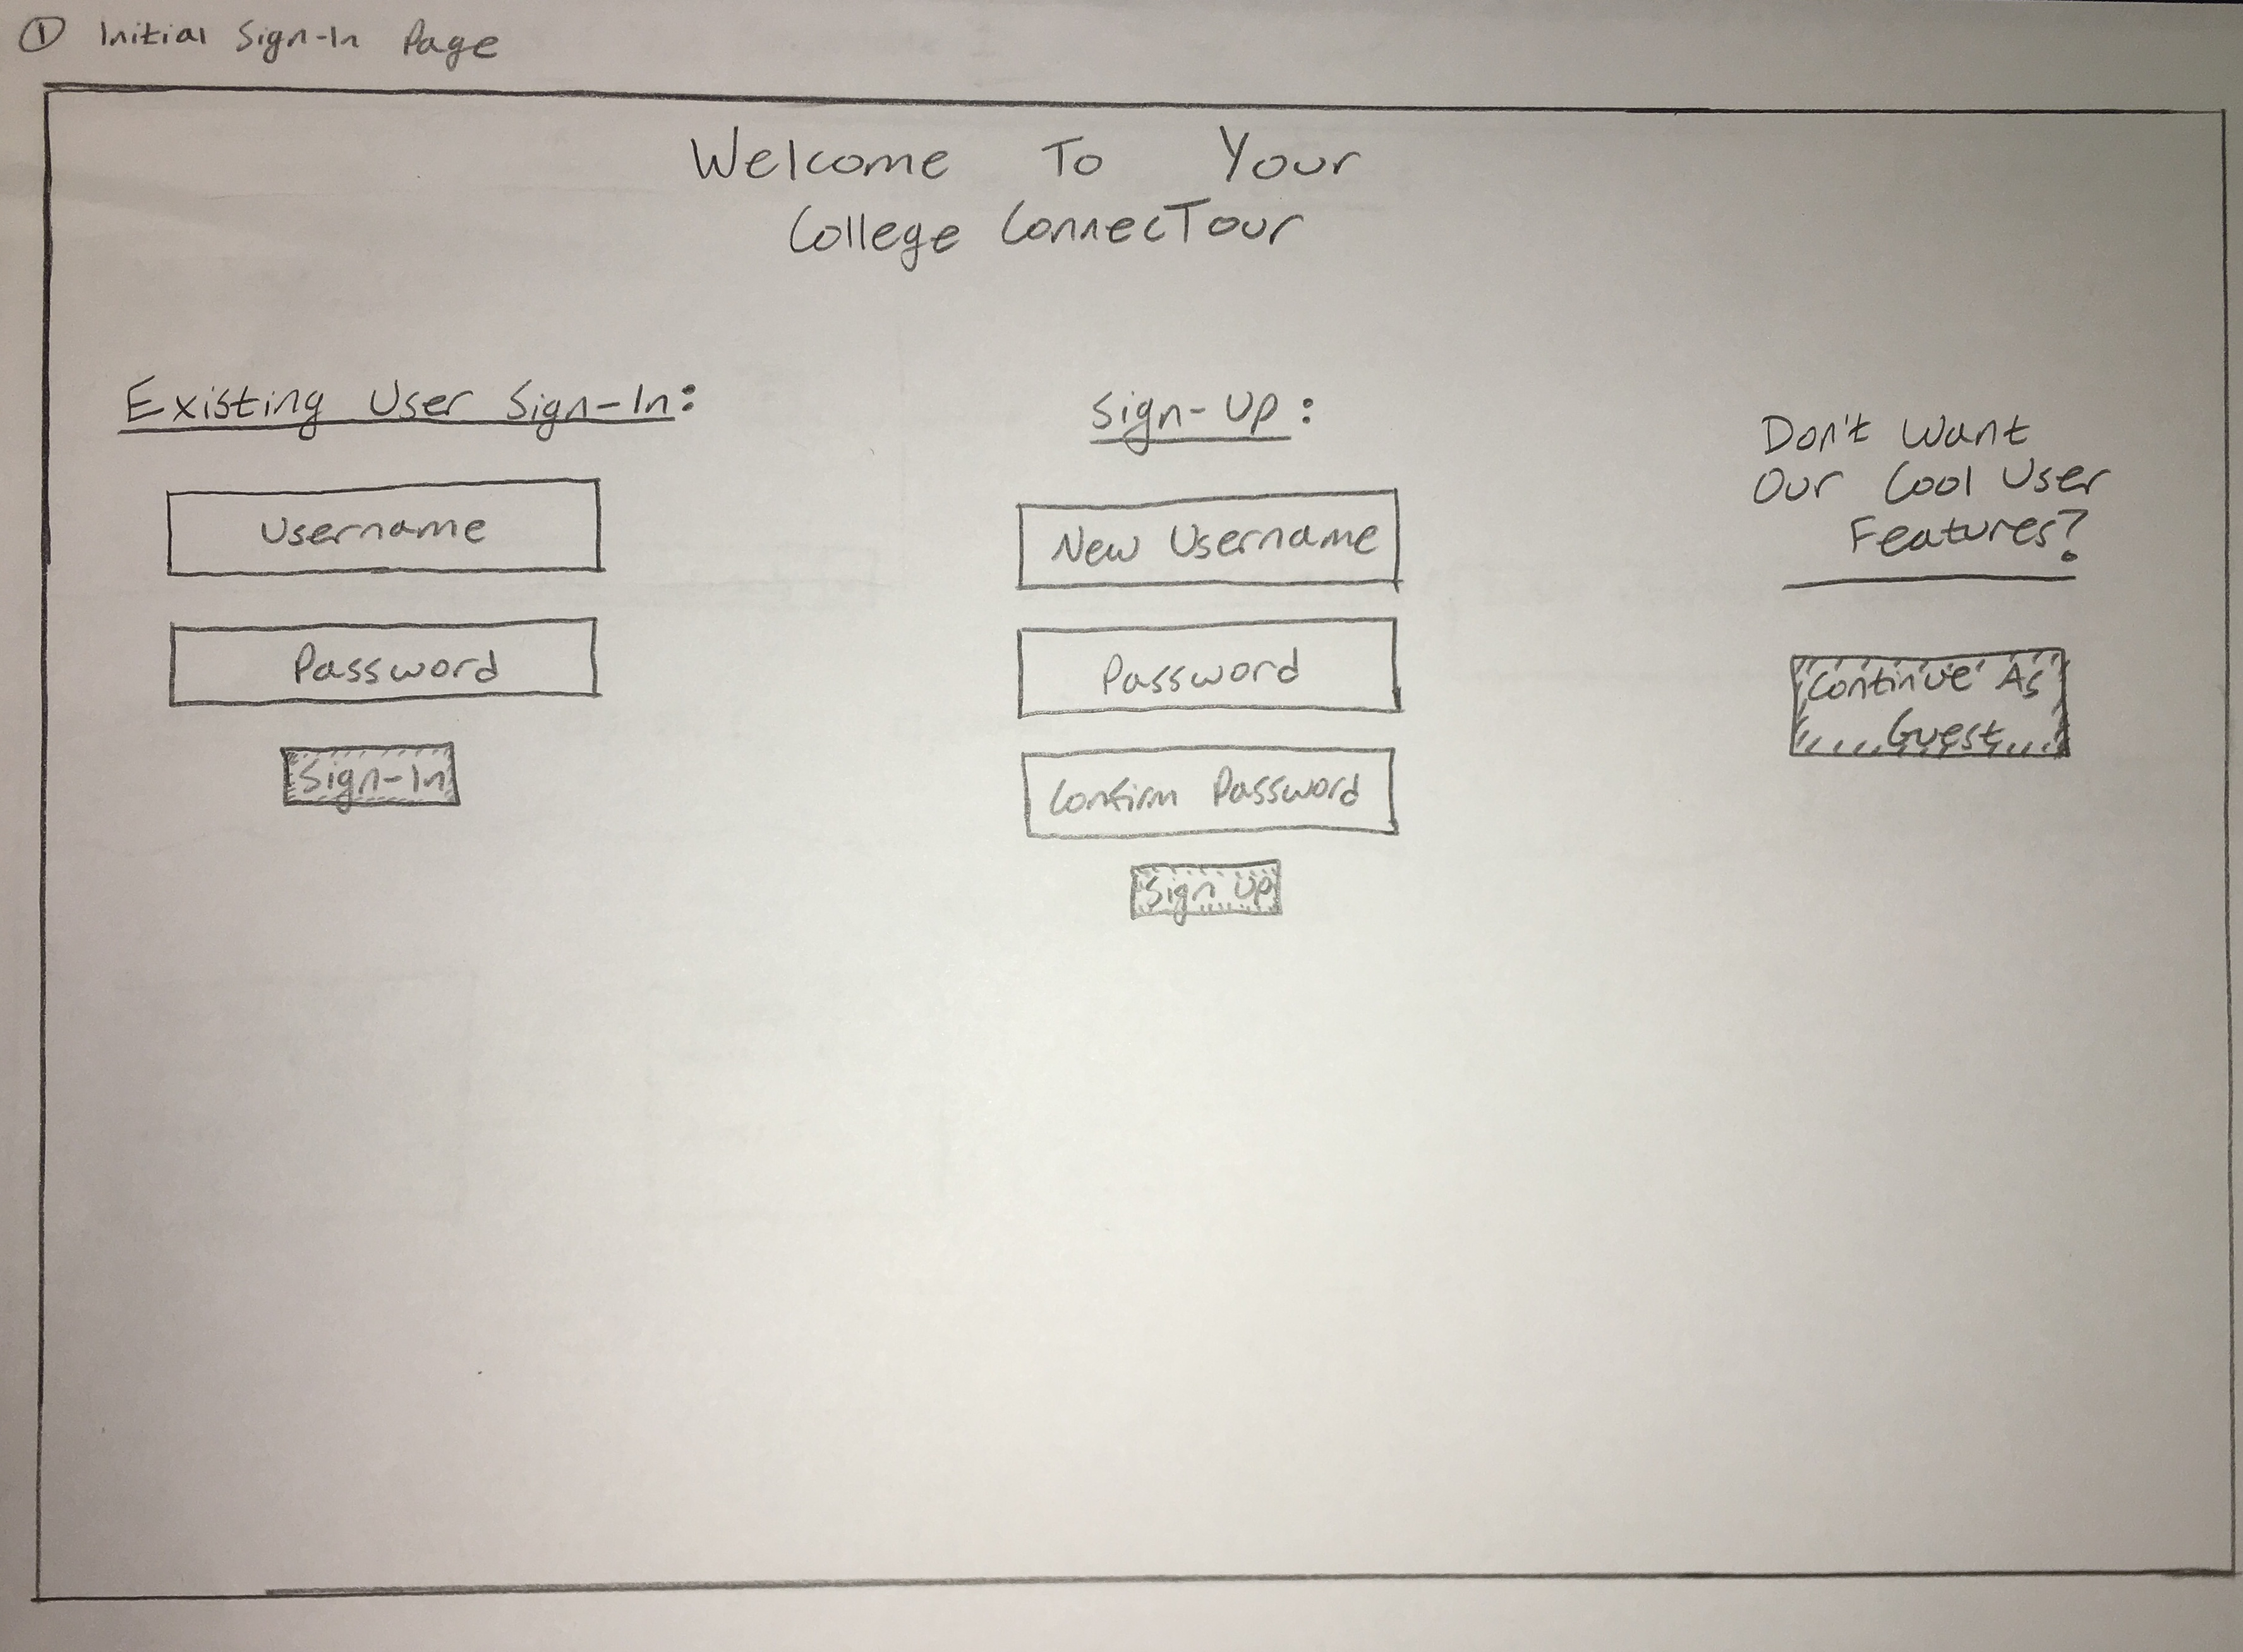 ① Initial Sign-In Page
Welcome To Your
College ConnecTour
Existing User Sign-In:
Username
Password
Sign-In
Sign-Up:
New Username
Password
Confirm Password
Sign Up
Don't Want
Our Cool User
Features?
Continue As
Guest